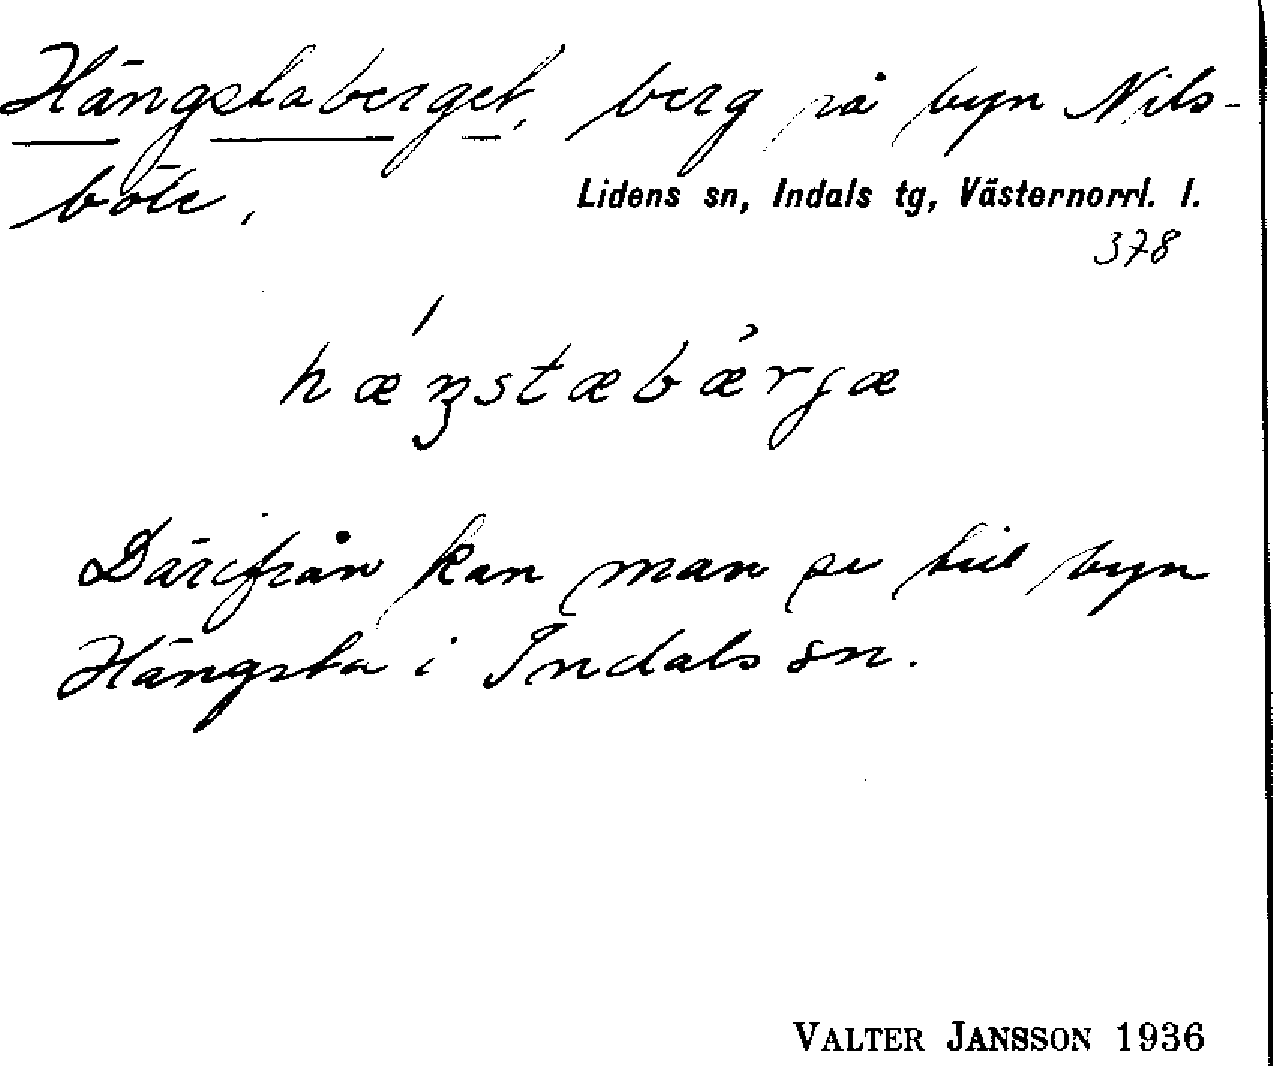 Hängstaberget, berg på byn Nils-
böle,
Lidens sn, Indals tg, Västernorrl. l.
378
hæŋstæbærjæ
Därifrån kan man se till byn
Hängsta i Indals sn.
VALTER JANSSON 1936